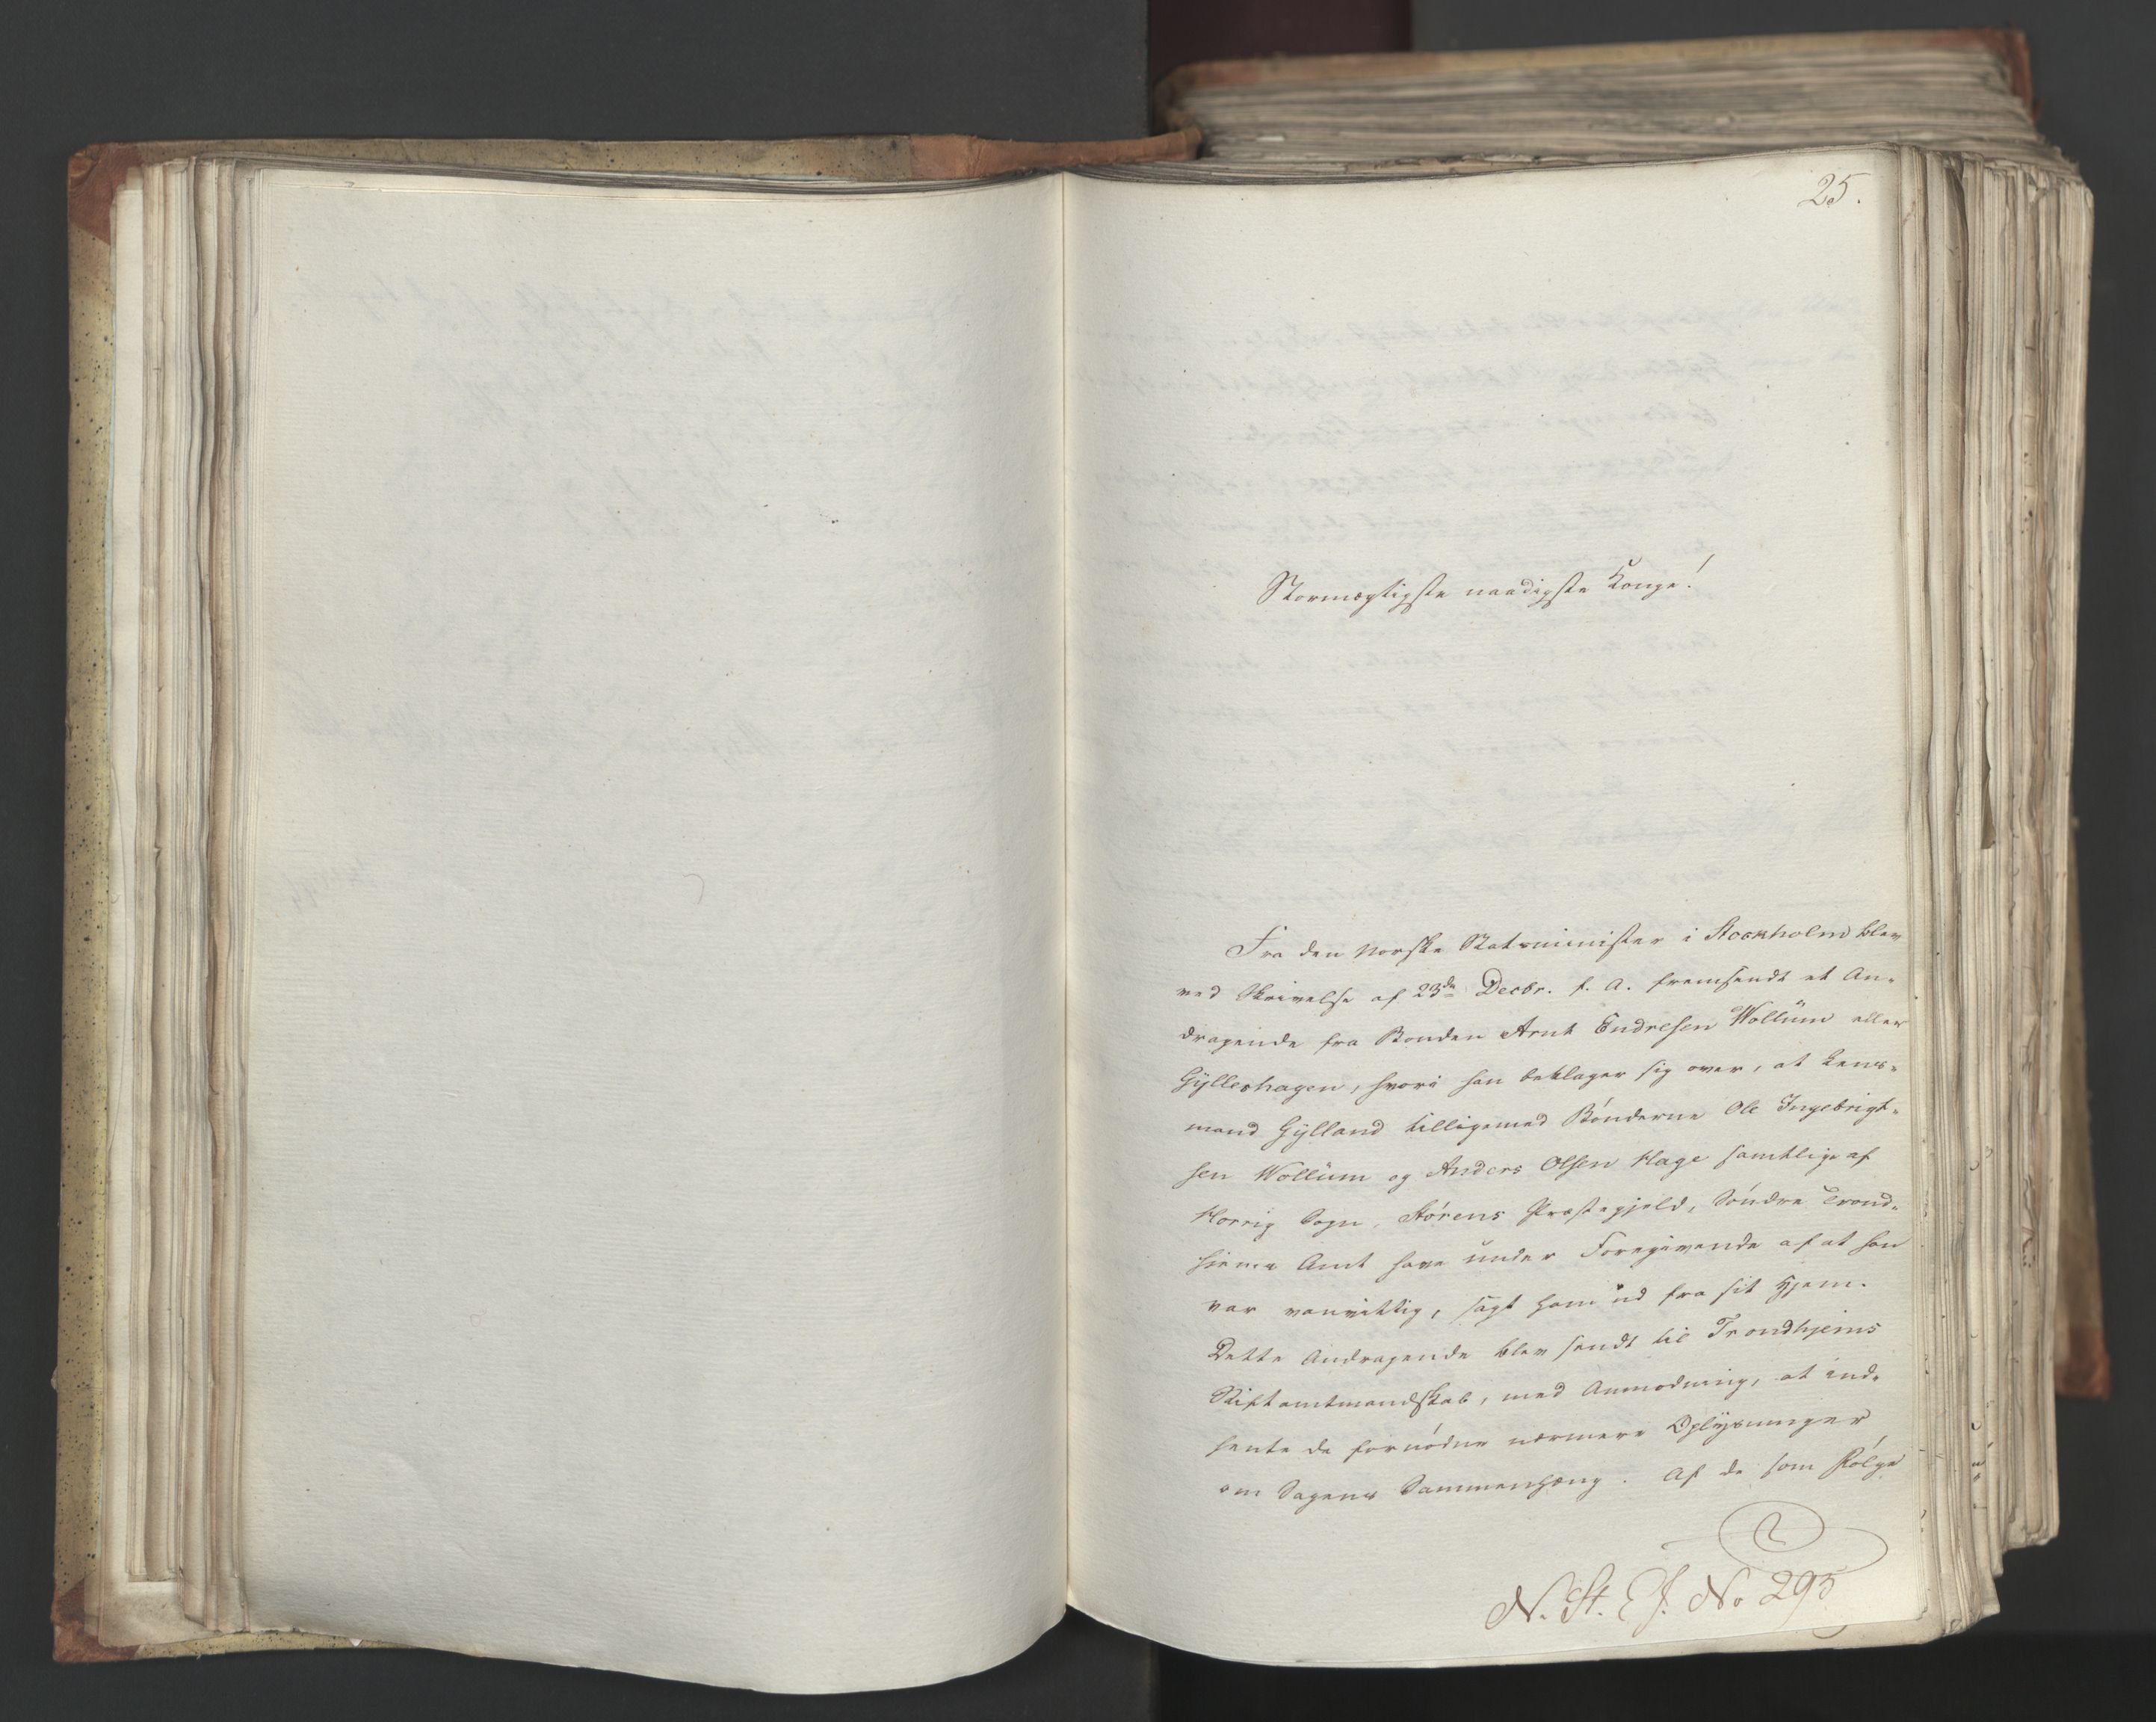 25.
Stormægtigste naadigste Konge!
Fra den norske Statsminister i Stockholm blev
ved Skrivelse af 23de Decbr. f. A. fremsendt et An-
dragende fra Bonden Arnt Endresen Wollum eller
Gylleshagen, hvori han beklager sig over, at Lens-
mand Gylland tilligemed Bönderne Ole Ingebrigt-
sen Wollum og Anders Olsen Hage samtlige af
Horrig Sogn, Störens Præstegjeld, Söndre Trond-
hiems Amt have under Foregivende af at han
var vanvittig, jagt ham ud fra sit Hjem.
Dette Andragende blev sendt til Trondhjems
Stiftamtmandskab, med Anmodning, at ind-
hente de fornödne nærmere Oplysninger
om Sagens Sammenhæng. Af de som Fölge
N. St. E. J. No 295